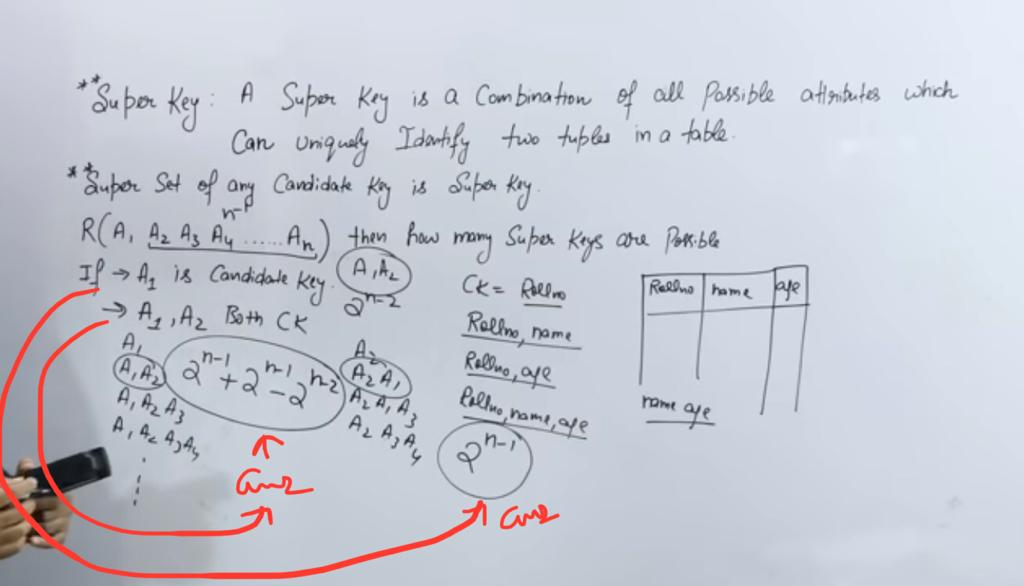 **Super Key: A Super Key is a Combination of all Possible attributes which
Can uniquely Identify two tuples in a table.
**Super Set of any Candidate Key is Super Key.
n-1
R(A₁ A₂ A₃ A₄ ...... Aₙ) then how many Super Keys are Possible
If → A₁ is Candidate Key.
A₁A₂
2ⁿ⁻²
→ A₁, A₂ Both CK
A₁
A₁A₂
A₁A₂A₃
A₁A₂A₃A₄
2ⁿ⁻¹ + 2ⁿ⁻¹ - 2ⁿ⁻²
A₂
A₂A₁
A₂A₁A₃
A₂A₃A₄
ans
CK = Rollno
Rollno, name
Rollno, age
Rollno, name, age
2ⁿ⁻¹
ans
Rollno name age
name age